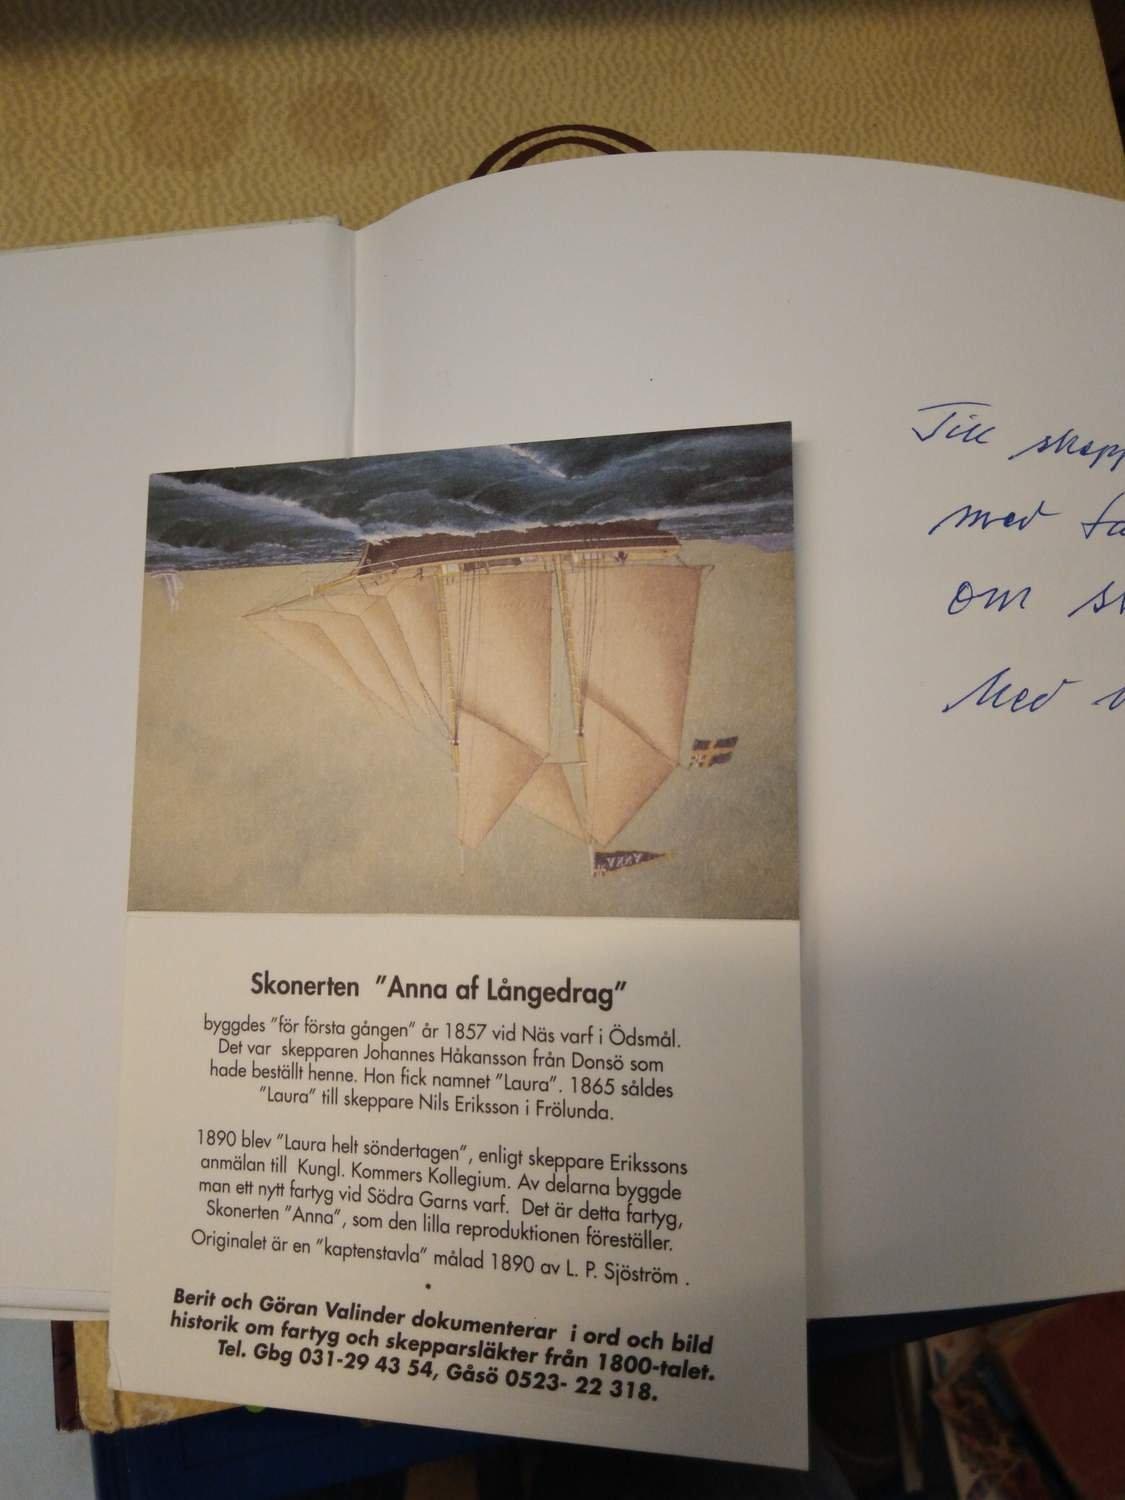 Till
med
om
Med
ANNA
Skonerten "Anna af Långedrag"
byggdes "för första gången" år 1857 vid Näs varf i Ödsmål.
Det var skepparen Johannes Håkansson från Donsö som
hade beställt henne. Hon fick namnet "Laura". 1865 såldes
"Laura" till skeppare Nils Eriksson i Frölunda.
1890 blev "Laura helt söndertagen", enligt skeppare Erikssons
anmälan till Kungl. Kommers Kollegium. Av delarna byggde
man ett nytt fartyg vid Södra Garns varf. Det är detta fartyg,
Skonerten "Anna", som den lilla reproduktionen föreställer.
Originalet är en "kaptenstavla" målad 1890 av L. P. Sjöström .
Berit och Göran Valinder dokumenterar i ord och bild
historik om fartyg och skepparsläkter från 1800-talet.
Tel. Gbg 031-29 43 54, Gåsö 0523- 22 318.